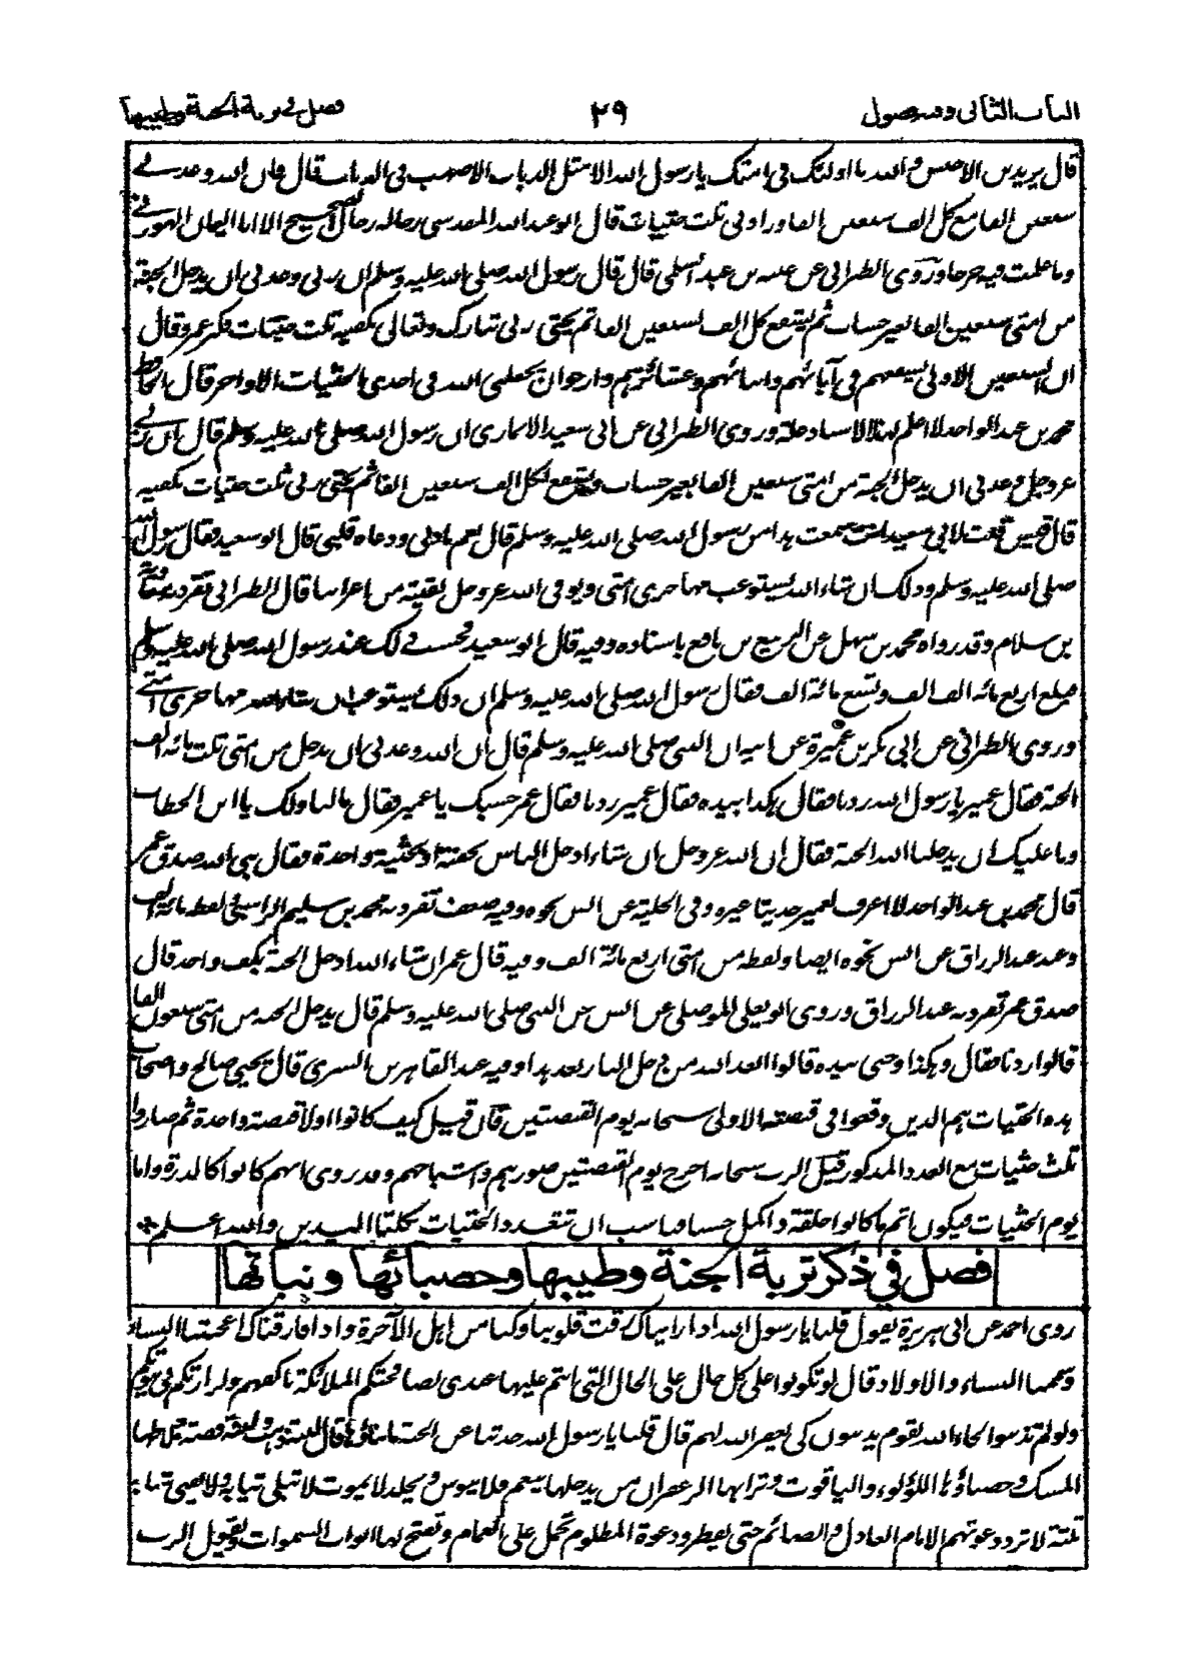 الباب الثاني وفيه فصول ٢٩ فصل في تربة الجنة وطيبها
قال يزيد بن الاخنس والله ما اولئك في امتك يا رسول الله الا مثل الذباب الاصهب في الذباب قال فان الله وعدني
سبعين الفا مع كل الف سبعين الفا وزادني ثلث حثيات قال ابو عبد الله المقدسي رجاله رجال الصحيح الا ابا اليمان الهوزني
وما علمت فيه جرحا وروى الطبراني عن عتبة بن عبد السلمي قال قال رسول الله صلى الله عليه وسلم ان ربي وعدني ان يدخل الجنة
من امتي سبعين الفا بغير حساب ثم يشفع كل الف لسبعين الفا ثم يحثى ربي تبارك وتعالى بكفيه ثلث حثيات فكبر عمر وقال
ان السبعين الاولى يشفعهم في آبائهم وابنائهم وعشائرهم وارجو ان يجعلني الله في احدى الحثيات الاواخر قال الحافظ
محمد بن عبد الواحد لا اعلم لهذا الاسناد علة وروى الطبراني عن ابي سعيد الانماري ان رسول الله صلى الله عليه وسلم قال ان ربي
عز وجل وعدني ان يدخل الجنة من امتي سبعين الفا بغير حساب ويشفع لكل الف سبعين الفا ثم يحثى ربي ثلث حثيات بكفيه
قال قيس فقلت لابي سعيد انت سمعت هذا من رسول الله صلى الله عليه وسلم قال نعم باذني ووعاه قلبي قال ابو سعيد فقال رسول الله
صلى الله عليه وسلم وذلك ان شاء الله يستوعب مهاجرى امتي ويوفى الله عز وجل بقيته من اعرابنا قال الطبراني تفرد به معاوية
بن سلام وقد رواه محمد بن سهل عن الربيع بن نافع باسناده وفيه قال ابو سعيد فحسب ذلك عند رسول الله صلى الله عليه وسلم
فبلغ اربع مائة الف الف وتسع مائة الف فقال رسول الله صلى الله عليه وسلم ان ذلك يستوعب ان شاء الله مهاجرى امتي
وروى الطبراني عن ابي بكر بن عميرة عن ابيه ان النبي صلى الله عليه وسلم قال ان الله وعدني ان يدخل من امتي ثلث مائة الف
الجنة فقال عمير يا رسول الله زدنا فقال هكذا بيده فقال عمير زدنا فقال عمر حسبك يا عمير فقال مالنا ولك يا ابن الخطاب
وما عليك ان يدخلنا الله الجنة فقال ان الله عز وجل ان شاء ادخل الناس بحفنة او بحثية واحدة فقال نبي الله صدق عمر
قال محمد بن عبد الواحد لا اعرف لعمير حديثا غيره وفي الحلية عن انس نحوه وفيه ضعف تفرد به محمد بن سليم الراسبي لفظه مائة الف
وعند عبد الرزاق عن انس نحوه ايضا ولفظه من امتي اربع مائة الف وفيه قال عمر ان شاء الله ادخل الجنة بكف واحد قال
صدق عمر تفرد به عبد الرزاق وروى ابو يعلى الموصلي عن انس عن النبي صلى الله عليه وسلم قال يدخل الجنة من امتي سبعون الفا
قالوا زدنا فقال وهكذا وحثى بيده قالوا ابعد الله من دخل النار بعد هذا وفيه عبد القاهر بن السري قال يحيى صالح واصحاب
هذه الحثيات هم الذين وقعوا في قبضته الاولى سبحانه يوم القبضتين فان قيل كيف كانوا اولا قبضة واحدة ثم صاروا
ثلث حثيات مع العدد المذكور قيل الرب سبحانه اخرج يوم القبضتين صورهم واشباحهم وقد روى انهم كانوا كالذرة واما
يوم الحثيات فيكون اتم ما كانوا خلقة واكمل حسا فناسب ان تتعدد الحثيات بكلتا اليدين والله اعلم *
فصل في ذكر تربة الجنة وطيبها وحصبائها ونباتها
روى احمد عن ابي هريرة يقول قلنا يا رسول الله اذا رايناك رقت قلوبنا وكنا من اهل الآخرة واذا فارقناك اعجبتنا النساء
وشممنا النساء والاولاد قال لو تكونوا على كل حال على الحال التي انتم عليها عندي لصافحتكم الملائكة باكفهم ولزارتكم في بيوتكم
ولو لم تذنبوا لجاء الله بقوم يذنبون كي يغفر الله لهم قال قلنا يا رسول الله حدثنا عن الجنة ما بناؤها قال لبنة ذهب ولبنة فضة ملاطها
المسك وحصباؤها اللؤلؤ والياقوت وترابها الزعفران من يدخلها ينعم فلا يبوس ويخلد لا يموت لا تبلى ثيابه ولا يفنى شبابه
ثلثة لا ترد دعوتهم الامام العادل والصائم حتى يفطر ودعوة المظلوم تحمل على الغمام وتفتح لها ابواب السموات ويقول الرب